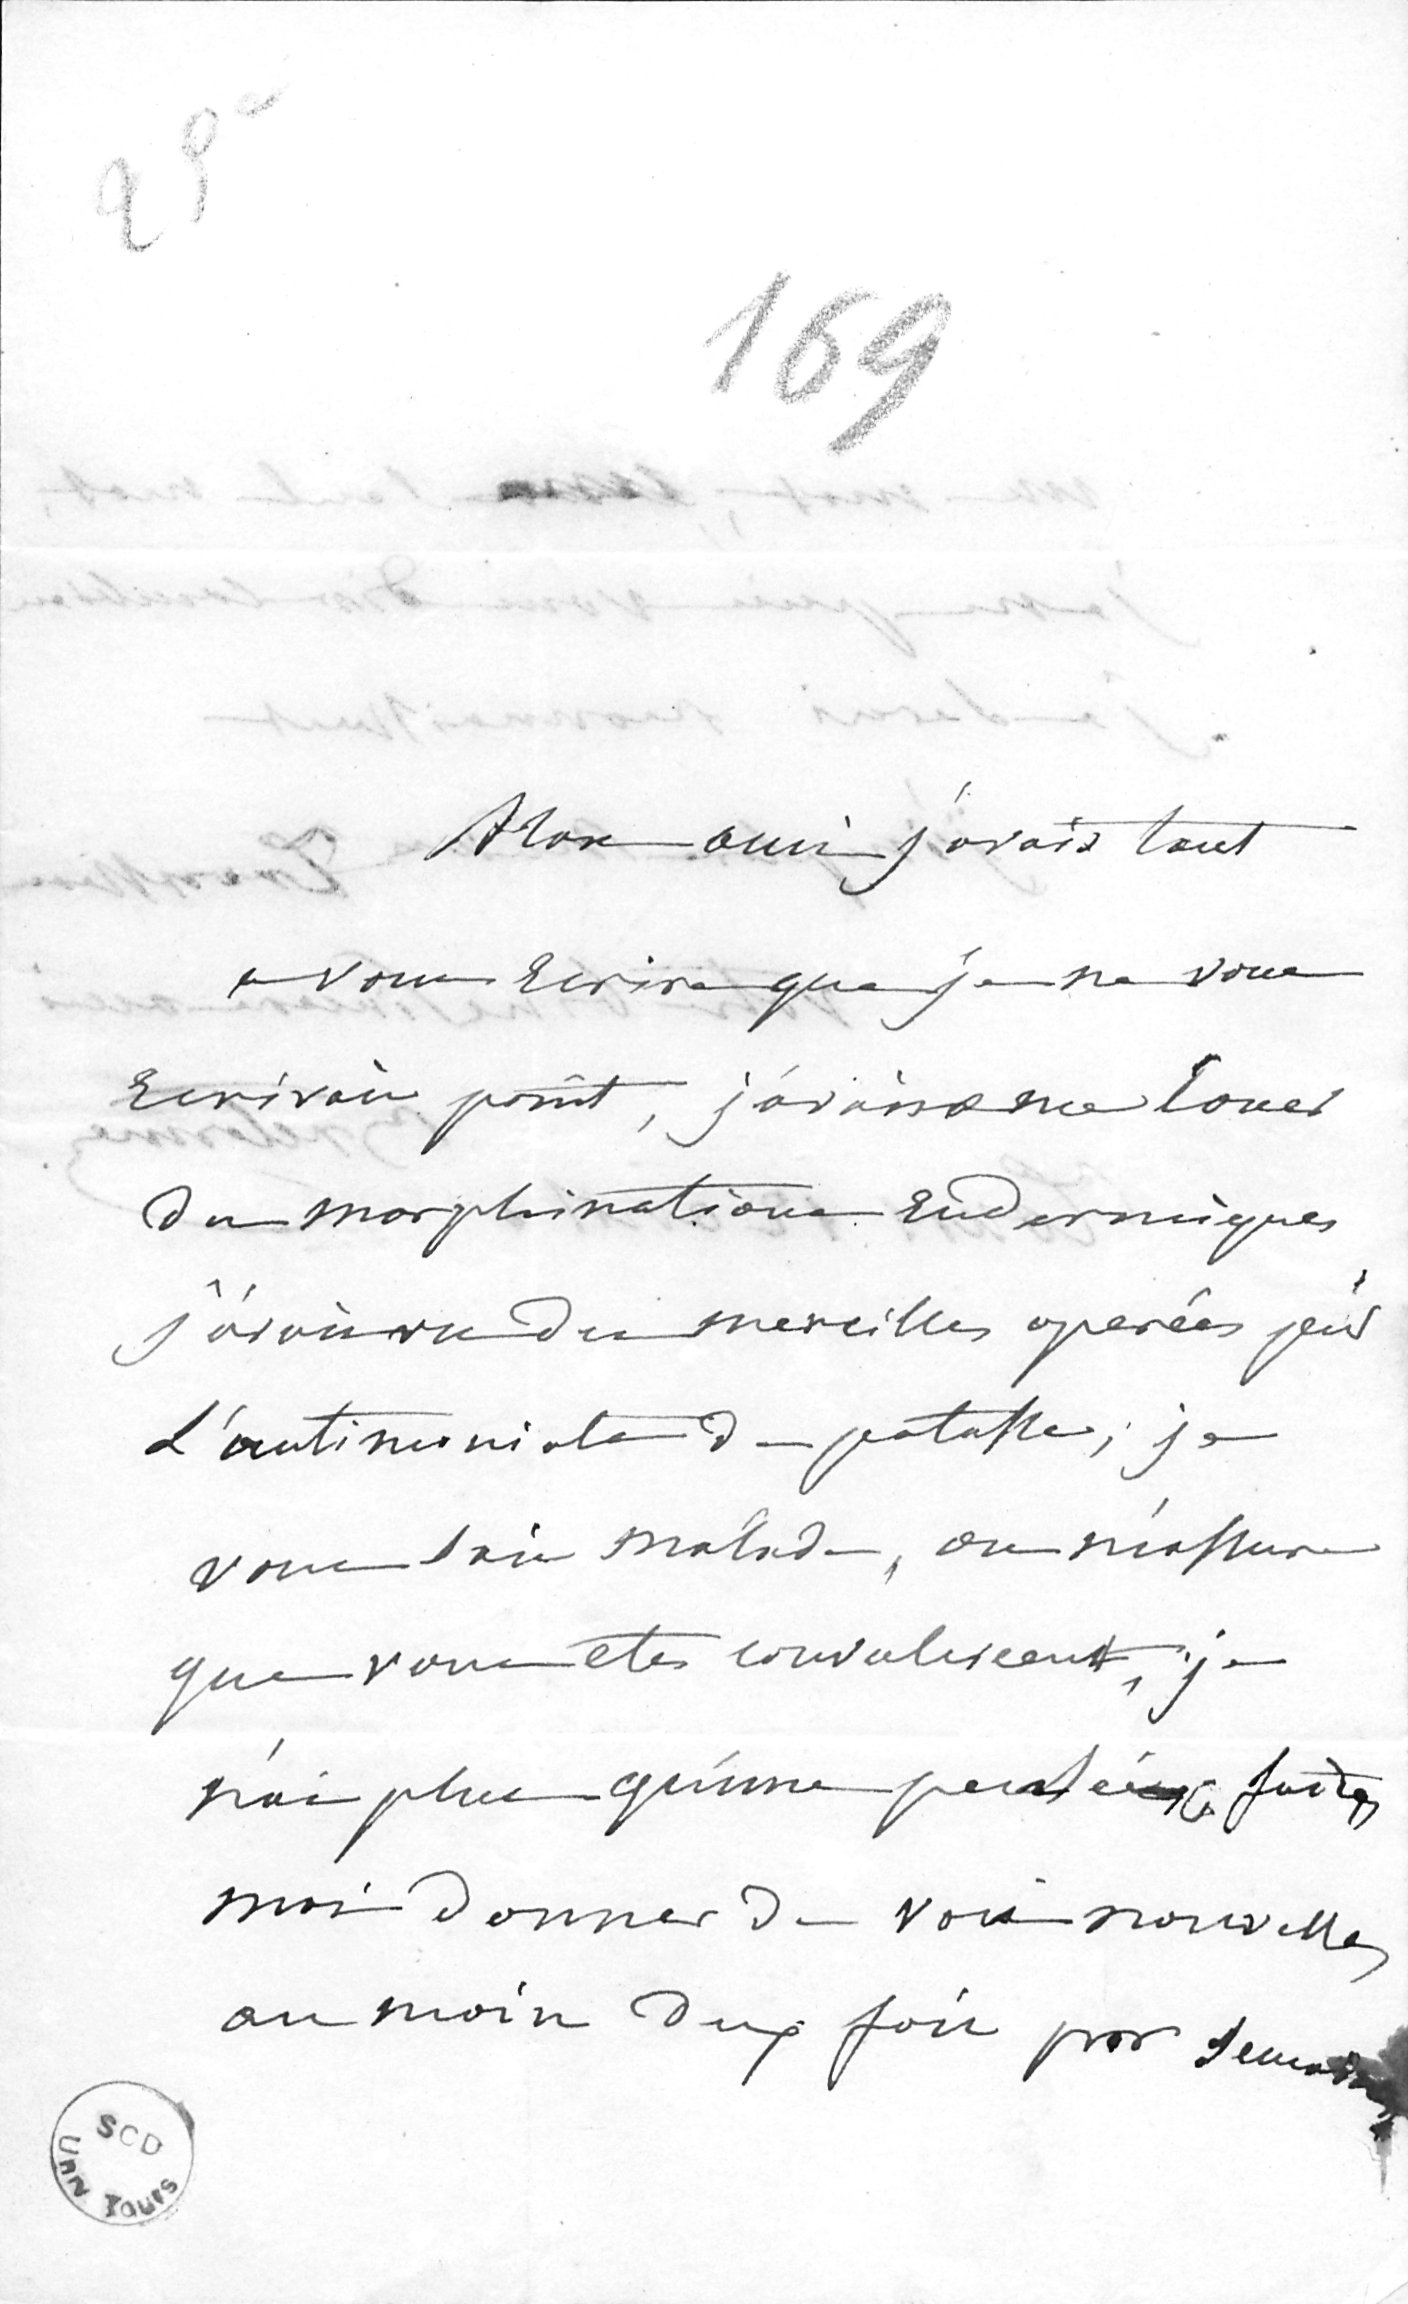 29e
169
Mon ami j'avais tant
a vous Ecrire que je ne vous
Ecrivais point, j'avais a me louer
des morphinations Endermiques
j'avais vu des merveilles operées par
L'antimoniate de potasse, je
vous sais malade, on m'assure
que vous etes convalescent, je
n'ai plus qu'une pensée faites
moi donner de vos nouvelles
au moins deux fois par semaine
SCD
Univ Tours